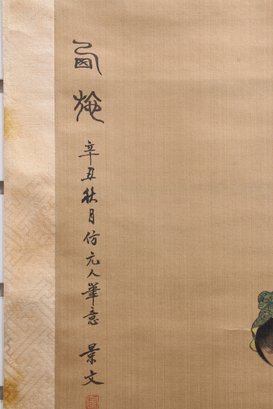 辛丑秋月仿元人筆意 景文